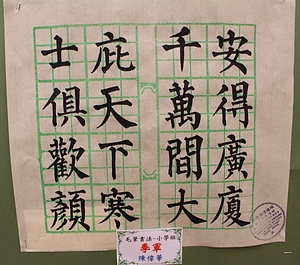 安得廣廈
千萬間大
庇天下寒
士俱歡顏
毛筆書法-小學組
季軍
陳偉華